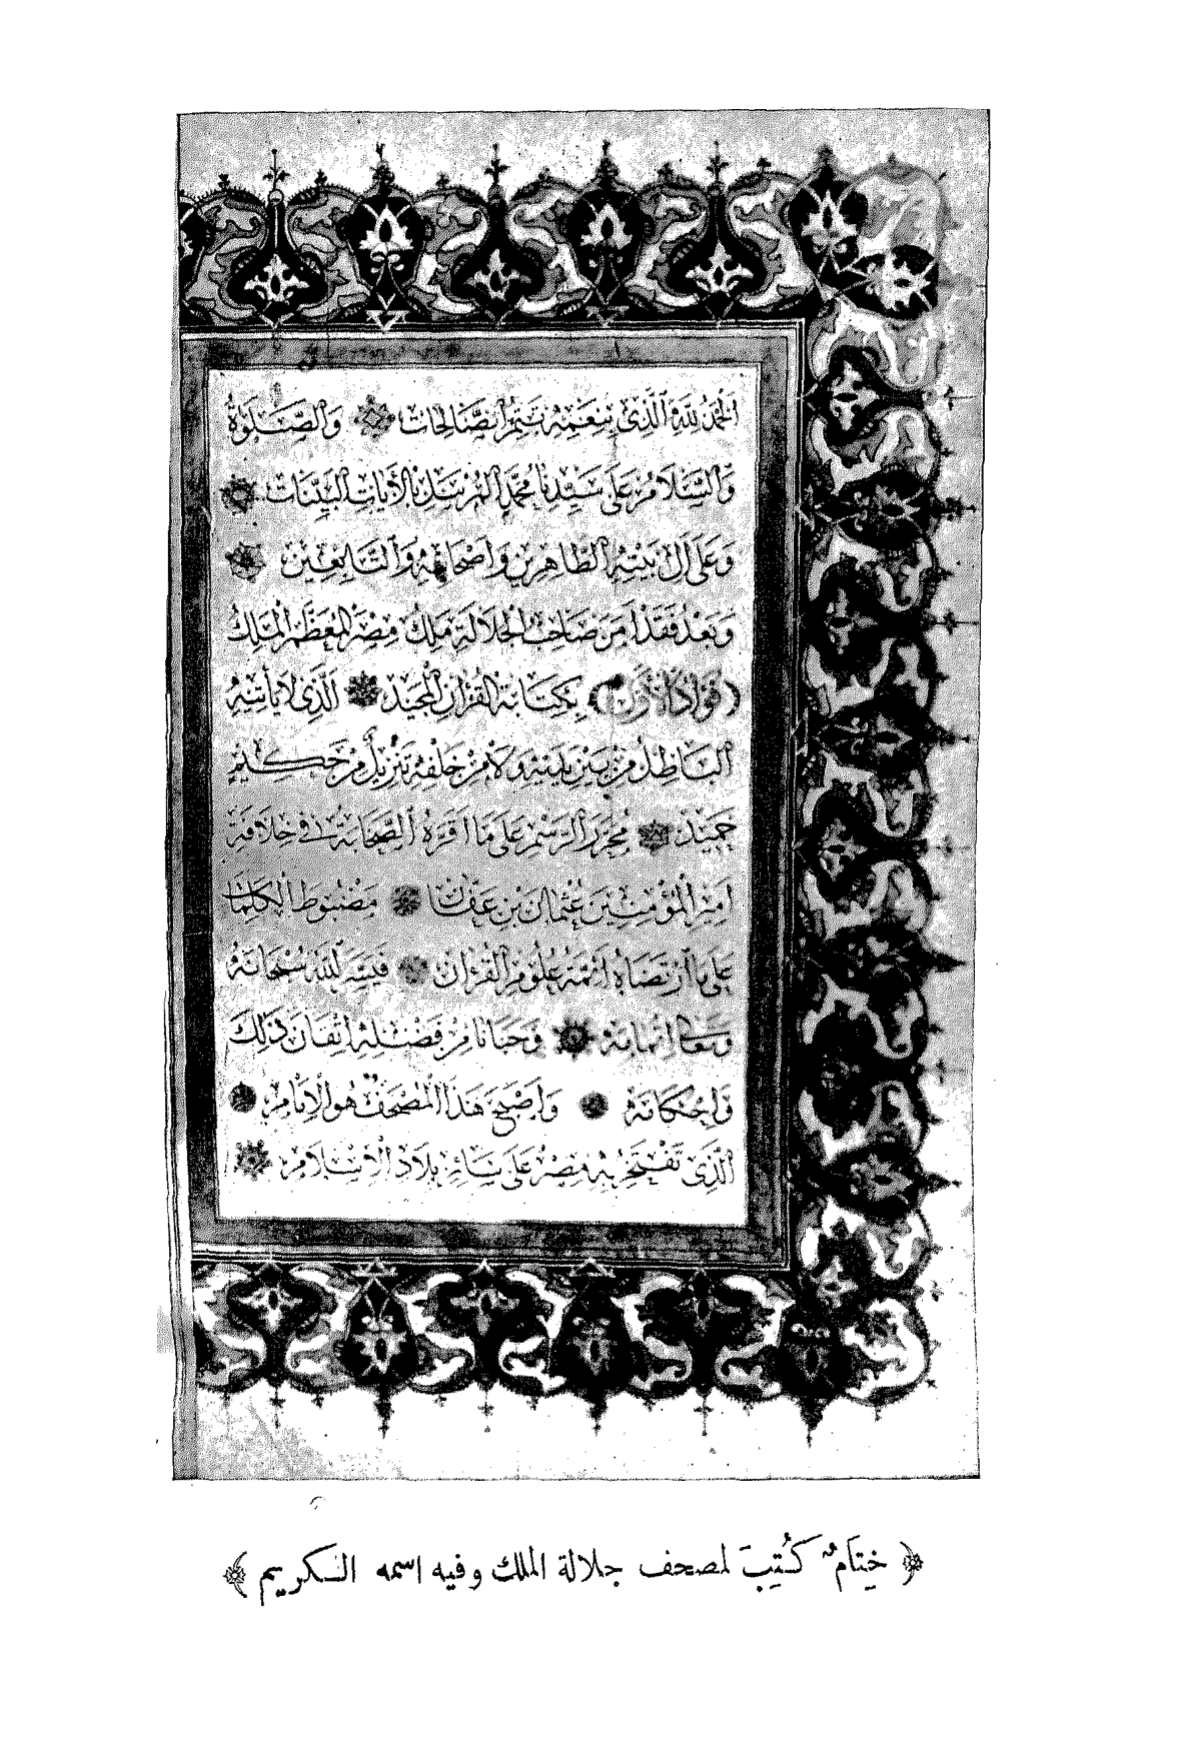 الْحَمْدُ لِلّٰهِ الَّذِي بِنِعْمَتِهِ تَتِمُّ الصَّالِحَاتُ وَالصَّلَوٰةُ
وَالسَّلَامُ عَلَى سَيِّدِنَا مُحَمَّدٍ الْمُرْسَلِ بِالْآيَاتِ الْبَيِّنَاتِ
وَعَلَى آلِ بَيْتِهِ الطَّاهِرِينَ وَأَصْحَابِهِ وَالتَّابِعِينَ
وَبَعْدُ فَقَدْ أَمَرَ صَاحِبُ الْجَلَالَةِ مَلِكُ مِصْرَ الْمُعَظَّمُ الْمَلِكُ
(فُؤَادٌ الْأَوَّلُ) بِكِتَابَةِ الْقُرْآنِ الْمَجِيدِ الَّذِي لَا يَأْتِيهِ
الْبَاطِلُ مِنْ بَيْنِ يَدَيْهِ وَلَا مِنْ خَلْفِهِ تَنْزِيلٌ مِنْ حَكِيمٍ
حَمِيدٍ مُحَرَّرَ الرَّسْمِ عَلَى مَا أَقَرَّهُ الصَّحَابَةُ فِي خِلَافَةِ
أَمِيرِ الْمُؤْمِنِينَ عُثْمَانَ بْنِ عَفَّانَ مَضْبُوطَ الْكَلِمَاتِ
عَلَى مَا ارْتَضَاهُ أَئِمَّةُ عُلُومِ الْقُرْآنِ فَيَسَّرَ اللّٰهُ سُبْحَانَهُ
وَتَعَالَى إِتْمَامَهُ وَحَبَانَا مِنْ فَضْلِهِ إِتْقَانَ ذٰلِكَ
وَإِحْكَامَهُ وَأَصْبَحَ هَذَا الْمُصْحَفُ هُوَ الْإِمَامُ
الَّذِي تَفْتَخِرُ بِهِ مِصْرُ عَلَى سَائِرِ بِلَادِ الْإِسْلَامِ
﴿ خِتَامٌ كُتِبَ لمصحف جلالة الملك وفيه اسمه الكريم ﴾